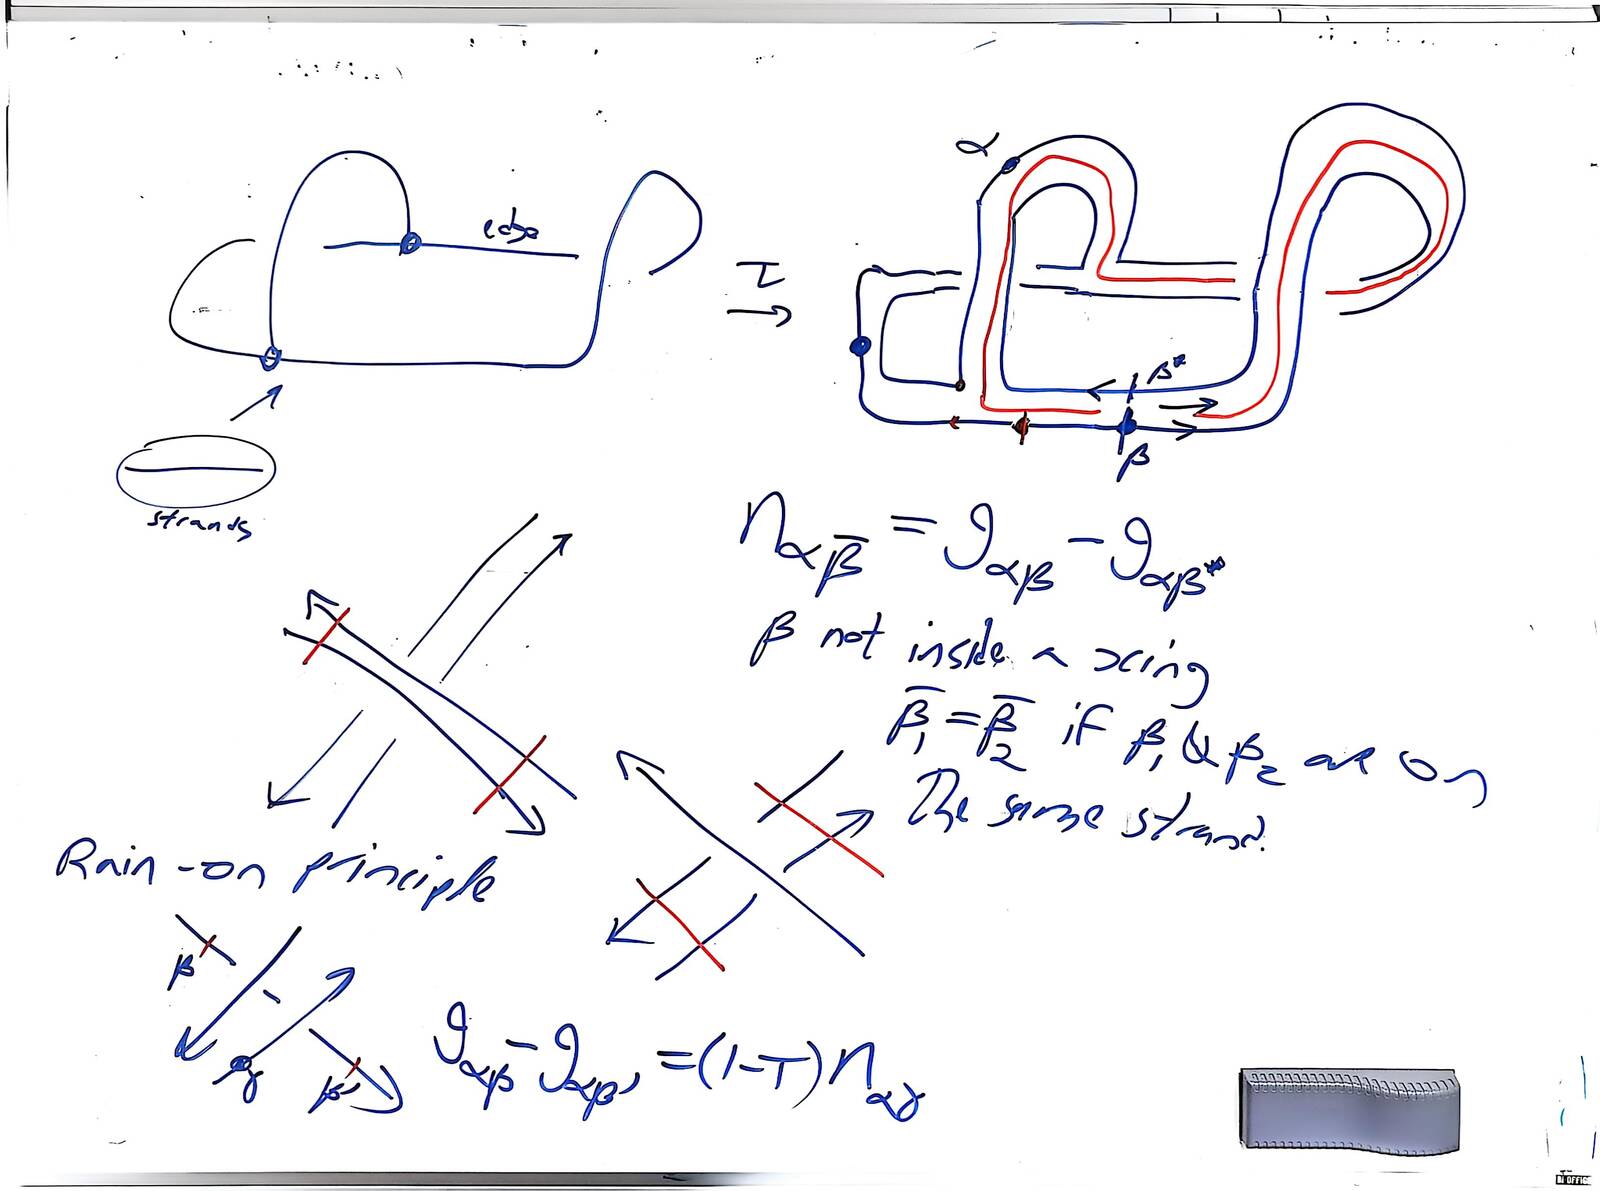 edge
α
τ
→
β*
β
strands
n_{αβ̄} = g_{αβ} - g_{αβ*}
β not inside a xing
β̄₁ = β̄₂ if β₁ & β₂ are on
the same strand.
Rain-on principle
β
γ
β'
g_{αβ} - g_{αβ'} = (1-T) n_{αγ}